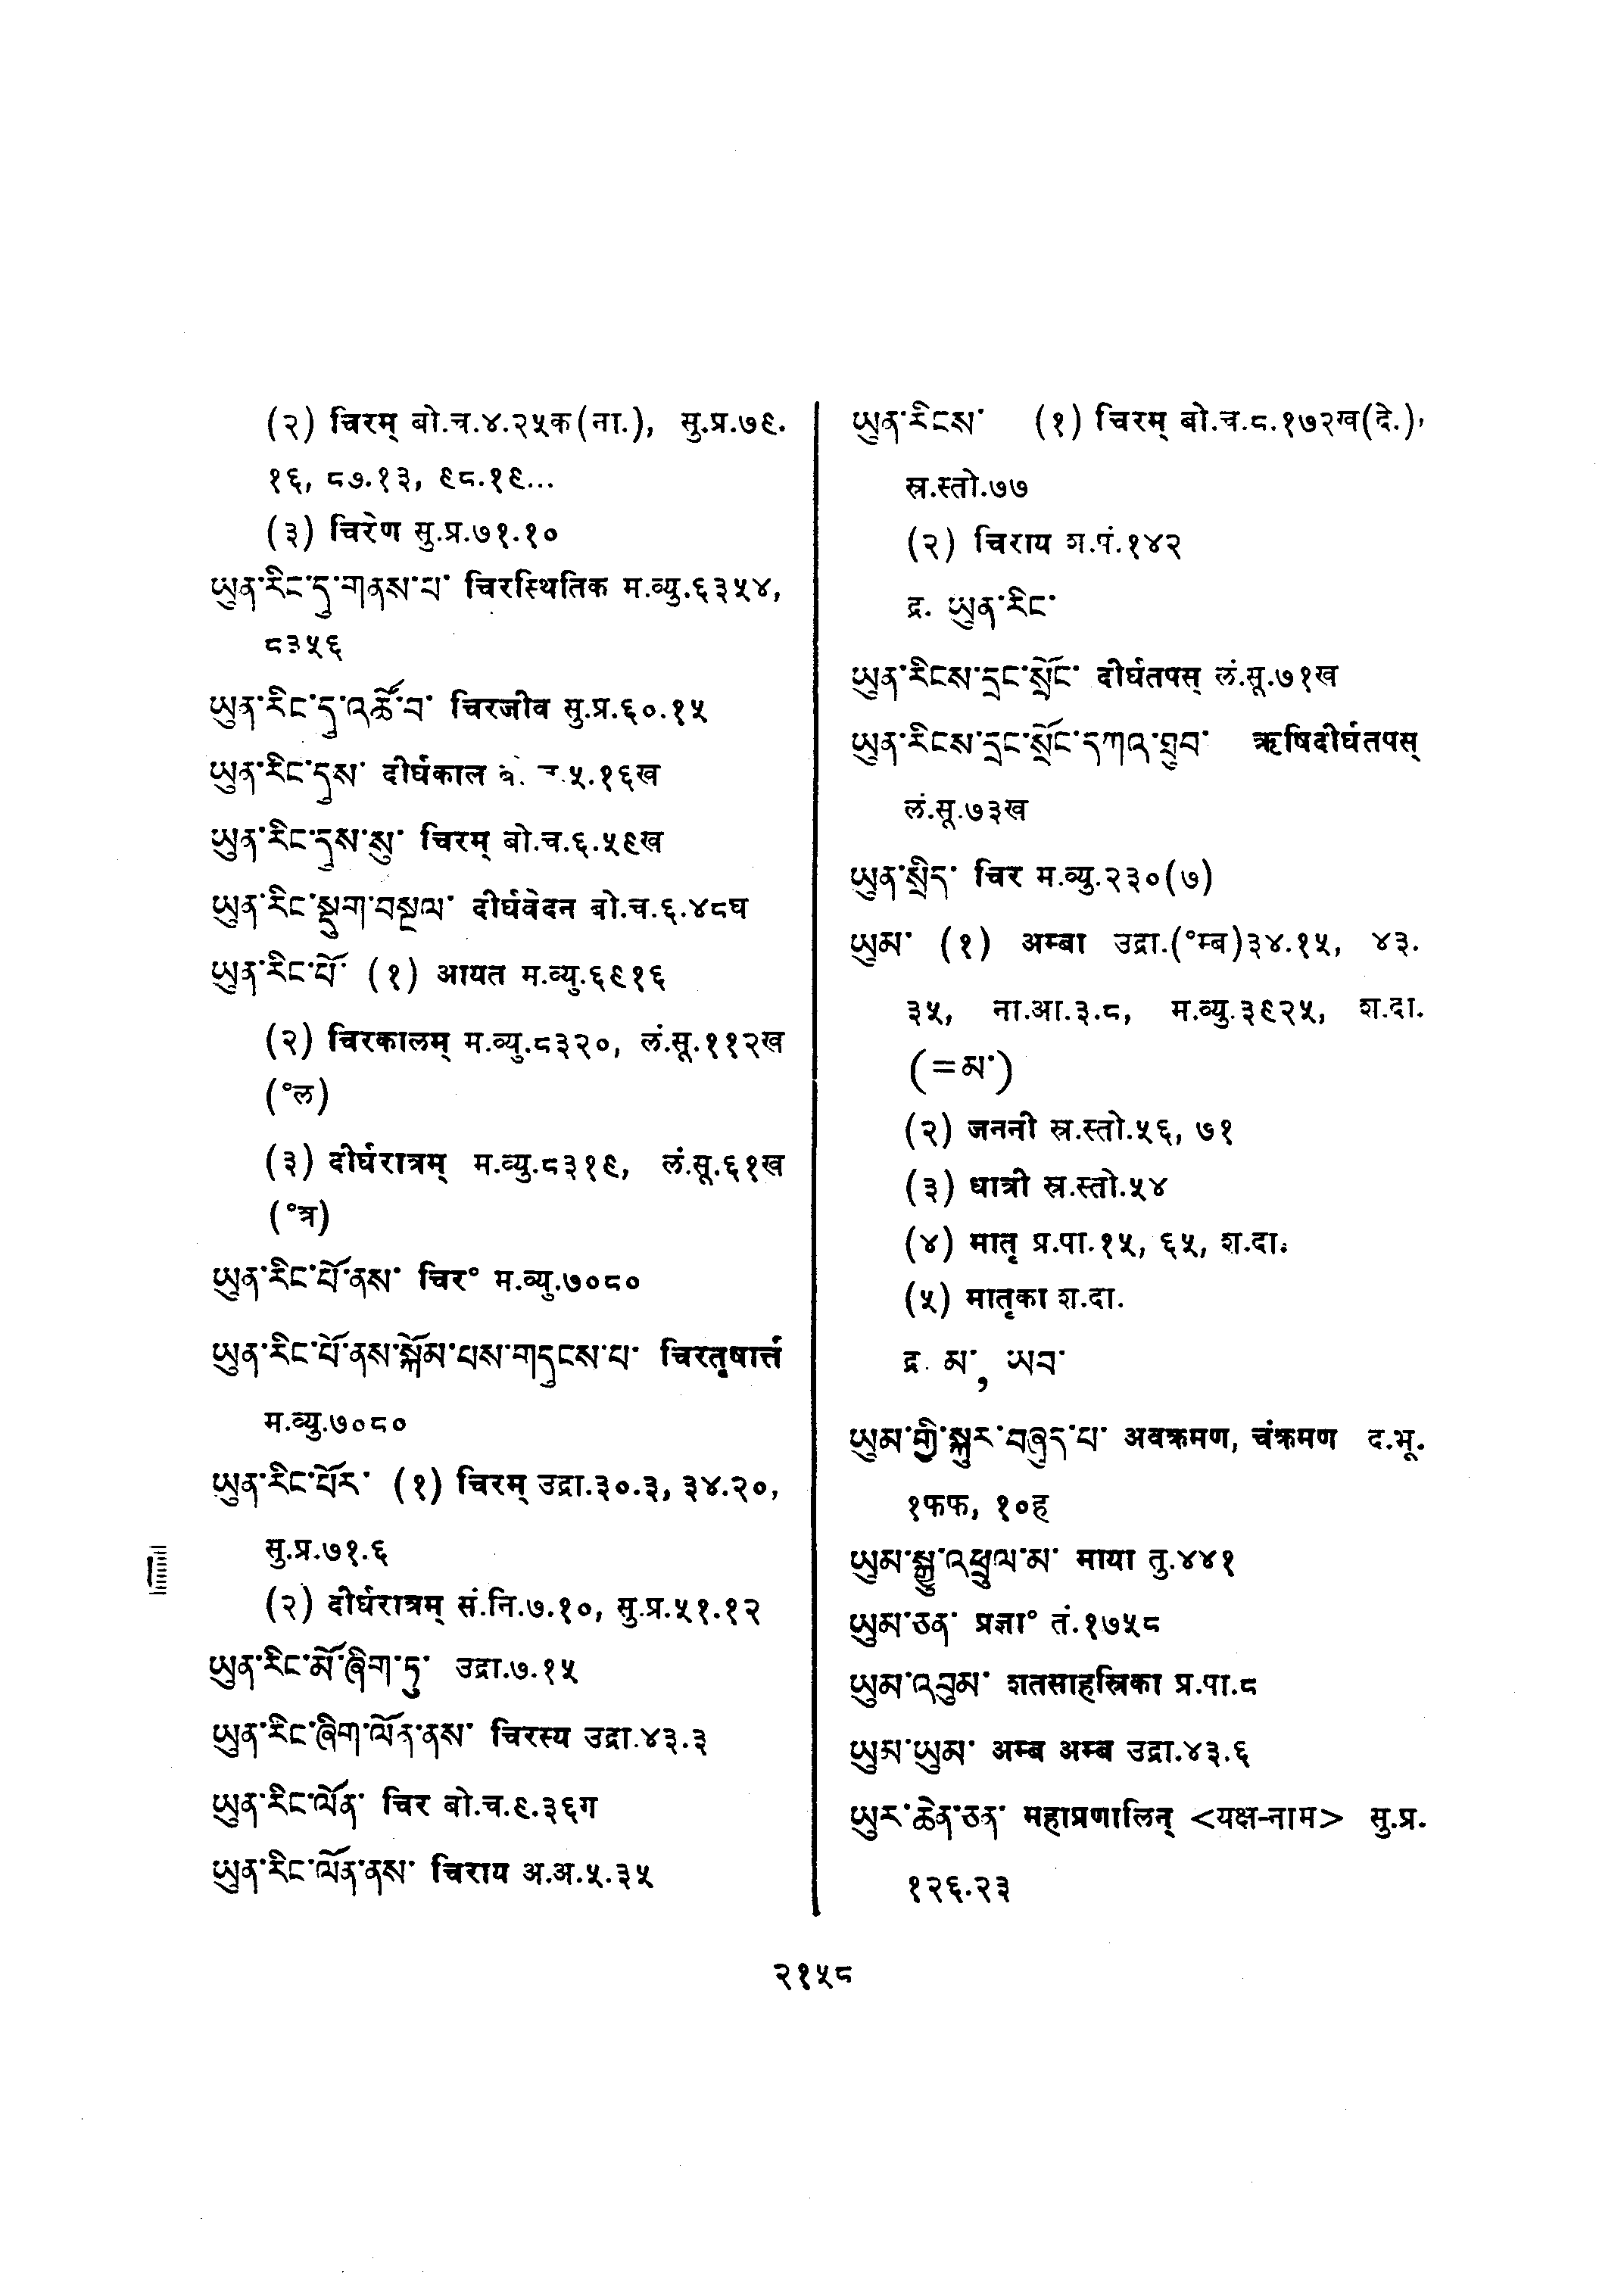 (२) चिरम् बो.च.४.२५क(ना.), सु.प्र.७९.
१६, ८७.१३, ९८.१९...
(३) चिरेण सु.प्र.७१.१०
ཡུན་རིང་དུ་གནས་པ་ चिरस्थितिक म.व्यु.६३५४,
८३५६
ཡུན་རིང་དུ་འཚོ་བ་ चिरजीव सु.प्र.६०.१५
ཡུན་རིང་དུས་ दीर्घकाल ५.१६ख
ཡུན་རིང་དུས་སུ་ चिरम् बो.च.६.५९ख
ཡུན་རིང་སྡུག་བསྔལ་ दीर्घवेदन बो.च.६.४८घ
ཡུན་རིང་པོ་ (१) आयत म.व्यु.६९१६
(२) चिरकालम् म.व्यु.८३२०, लं.सू.११२ख
(°ल)
(३) दीर्घरात्रम् म.व्यु.८३१९, लं.सू.६१ख
(°त्र)
ཡུན་རིང་པོ་ནས་ चिर° म.व्यु.७०८०
ཡུན་རིང་པོ་ནས་སྐོམ་པས་གདུངས་པ་ चिरतृषार्त्त
म.व्यु.७०८०
ཡུན་རིང་པོར་ (१) चिरम् उद्रा.३०.३, ३४.२०,
सु.प्र.७१.६
(२) दीर्घरात्रम् सं.नि.७.१०, सु.प्र.५१.१२
ཡུན་རིང་མོ་ཞིག་ཏུ་ उद्रा.७.१५
ཡུན་རིང་ཞིག་ལོན་ནས་ चिरस्य उद्रा.४३.३
ཡུན་རིང་ལོན་ चिर बो.च.९.३६ग
ཡུན་རིང་ལོན་ནས་ चिराय अ.अ.५.३५
ཡུན་རིངས་ (१) चिरम् बो.च.८.१७२ख(दे.),
स्र.स्तो.७७
(२) चिराय श.पं.१४२
द्र. ཡུན་རིང་
ཡུན་རིངས་དྲང་སྲོང་ दीर्घतपस् लं.सू.७१ख
ཡུན་རིངས་དྲང་སྲོང་དཀའ་ཐུབ་ ऋषिदीर्घतपस्
लं.सू.७३ख
ཡུན་སྲིད་ चिर म.व्यु.२३०(७)
ཡུམ་ (१) अम्बा उद्रा.(°म्ब)३४.१५, ४३.
३५, ना.आ.३.८, म.व्यु.३९२५, श.दा.
(=མ་)
(२) जननी स्र.स्तो.५६, ७१
(३) धात्री स्र.स्तो.५४
(४) मातृ प्र.पा.१५, ६५, श.दा.
(५) मातृका श.दा.
द्र. མ་, ཡབ་
ཡུམ་གྱི་སྐུར་བཞུད་པ་ अवक्रमण, चंक्रमण द.भू.
१फफ, १०ह
ཡུམ་སྒྱུ་འཕྲུལ་མ་ माया तु.४४१
ཡུམ་ཅན་ प्रज्ञा° तं.१७५८
ཡུམ་འབུམ་ शतसाहस्रिका प्र.पा.८
ཡུམ་ཡུམ་ अम्ब अम्ब उद्रा.४३.६
ཡུར་ཆེན་ཅན་ महाप्रणालिन् <यक्ष-नाम> सु.प्र.
१२६.२३
२१५८